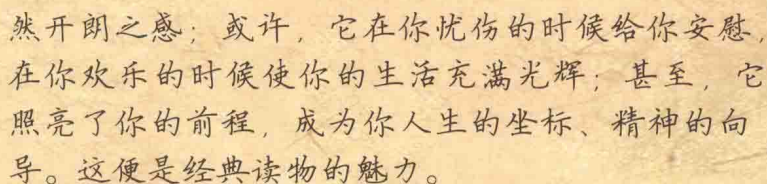 然开朗之感；或许，它在你忧伤的时候给你安慰，
在你欢乐的时候使你的生活充满光辉；甚至，它
照亮了你的前程，成为你人生的坐标、精神的向
导。这便是经典读物的魅力。